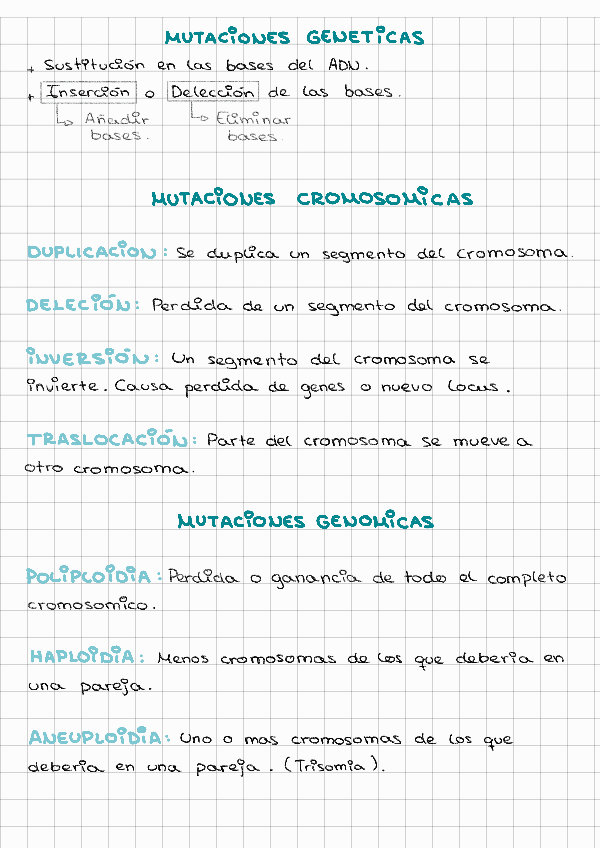 MUTACIONES GENETICAS
+ Sustitución en las bases del ADN.
+ Inserción o Delección de las bases.
↳ Añadir ↳ Eliminar
bases. bases.
MUTACIONES CROMOSOMICAS
DUPLICACION: Se duplica un segmento del cromosoma.
DELECIÓN: Perdida de un segmento del cromosoma.
INVERSIÓN: Un segmento del cromosoma se
invierte. Causa perdida de genes o nuevo locus.
TRASLOCACIÓN: Parte del cromosoma se mueve a
otro cromosoma.
MUTACIONES GENOMICAS
POLIPLOIDIA: Perdida o ganancia de todo el completo
cromosomico.
HAPLOIDIA: Menos cromosomas de los que deberia en
una pareja.
ANEUPLOIDIA: Uno o mas cromosomas de los que
deberia en una pareja. (Trisomia).